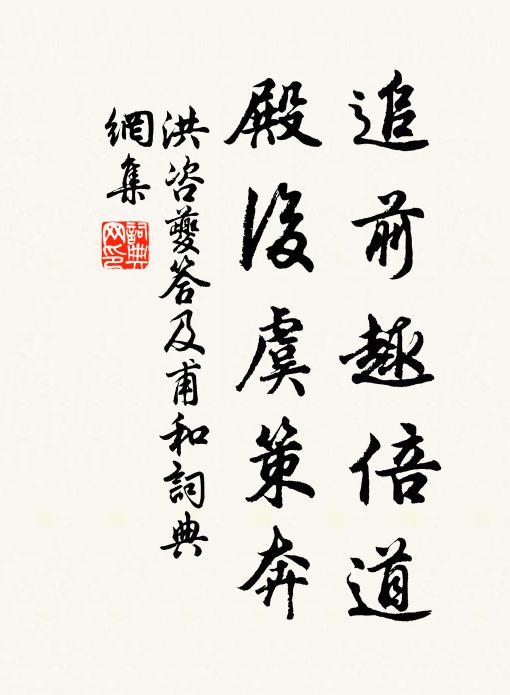 追前趣倍道
殿後虞策奔
洪咨夔答及甫和詞典
網集
詞典
网印